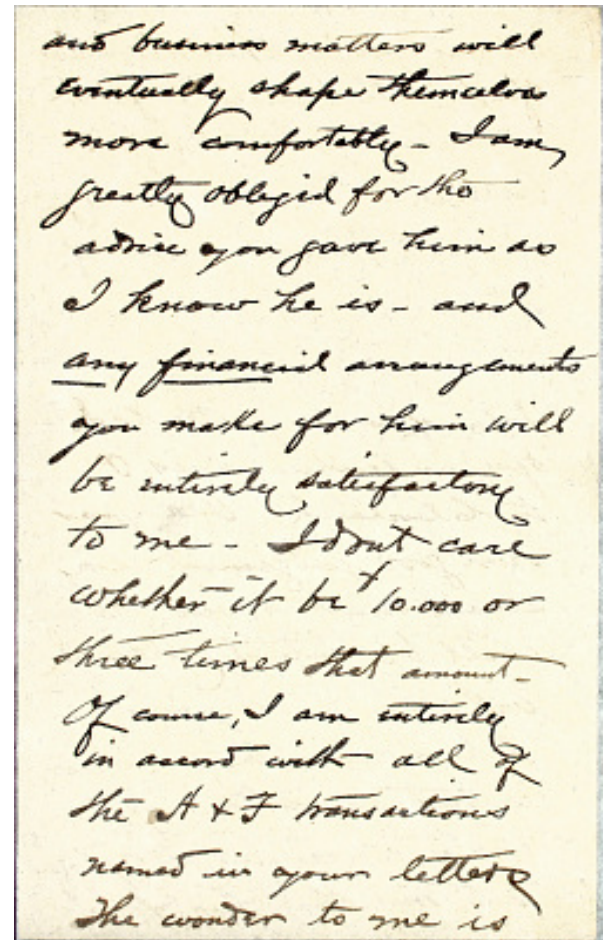 and business matters will
eventually shape themselves
more comfortably - I am
greatly obliged for the
advice you gave him as
I know he is - and
any financial arrangements
you make for him will
be entirely satisfactory
to me - I dont care
whether it be $10.000 or
three times that amount -
Of course, I am entirely
in accord with all of
the A & F transactions
named in your letters
The wonder to me is